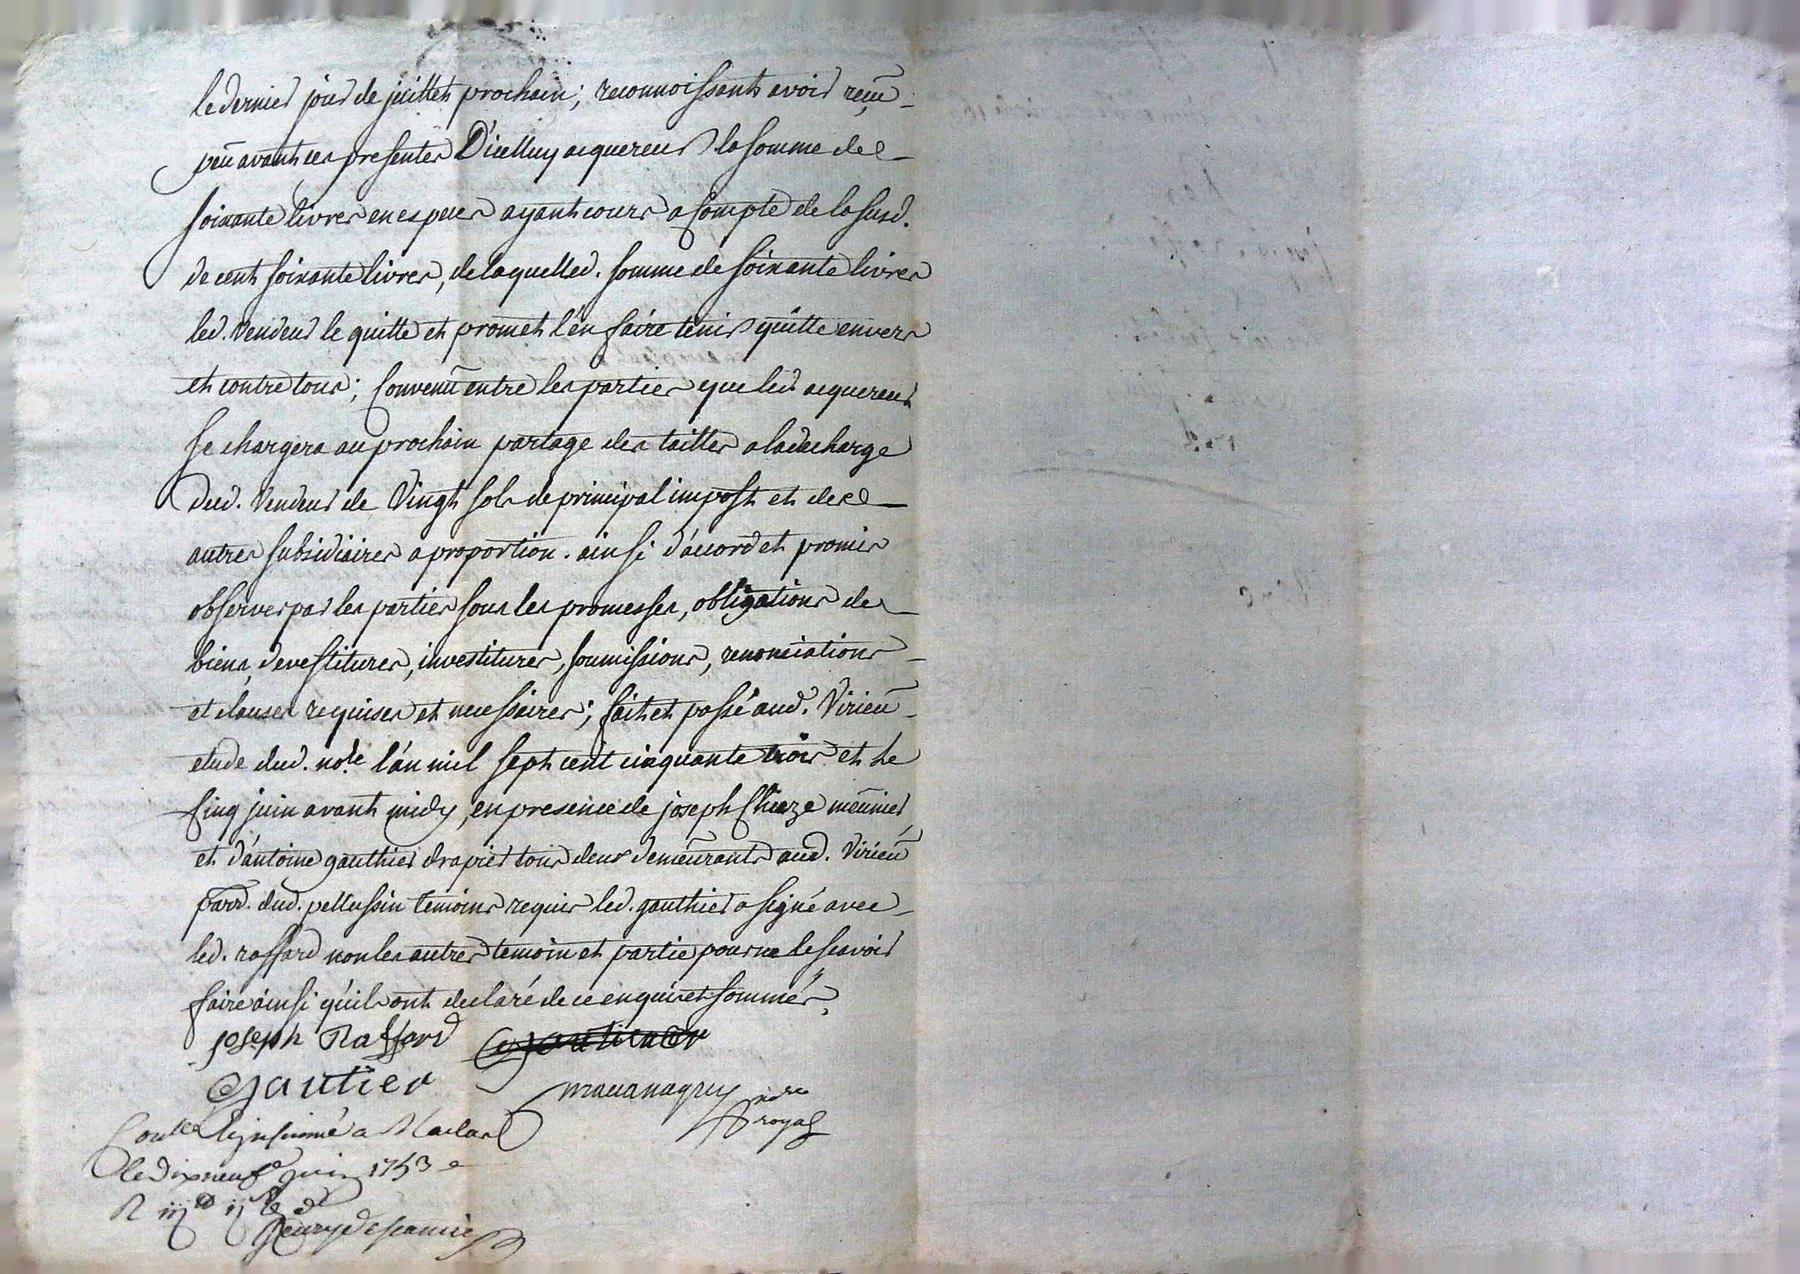 le dernier jour de juillet prochain; reconnoissant avoir reçeu
peu avant ces presentes D'icelluy acquereur la somme de
soixante livres en especes ayant cours a compte de la susd.
de cent soixante livres, de laquelled. somme de soixante livres
led. vendeur le quitte et promet l'en faire tenir quitte envers
et contre tous; Convenu entre les parties que led acquereur
se chargera au prochain partage des tailles a la decharge
dud. vendeur de vingt sols de principal impost et des
autres subsidiaires a proportion. ainsi d'accord et promis
observer par les parties sous les promesses, obligations de
biens, devestitures, investitures, soumissions, renonciations
et clauses requises et necessaires; fait et passé aud. Virieu
etude dud. nore l'an mil sept cent cinquante trois et le
cinq juin avant midy, en presence de joseph Cheze meunier
et d'antoine gauthier drapier tous deux demeurants aud. Virieu
parr. dud. pellussin temoins requis led. gauthier a signé avec
led. raffard non les autres temoin et partie pour ne le scavoir
faire ainsi qu'ils ont declaré de ce enquis et sommés,
joseph Raffard
Gautier mavanagruy nore
royal
Conlé et insinué a Maclas
le dix neuf juin 1753
R